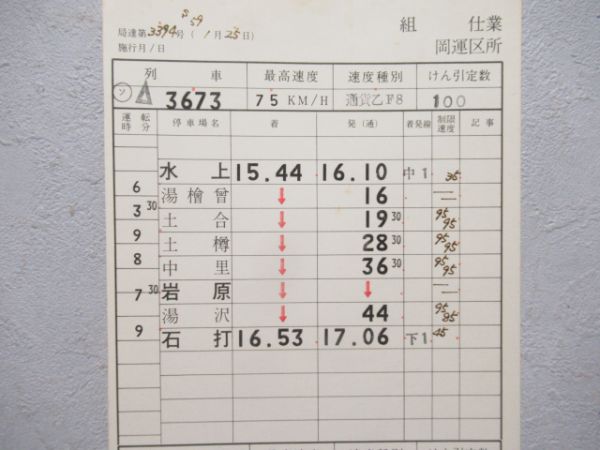 S59
局達第3394号(1月25日)
施行月/日
組 仕業
岡運区所
列 車 最高速度 速度種別 けん引定数
ソ 3673 75 KM/H 通貨乙F8 100
運転時分 停車場名 着 発(通) 着発線 制限速度 記事
水上 15.44 16.10 中1 35
6
湯檜曽 ↓ 16 —
3 30
土合 ↓ 19 30 95 95
9
土樽 ↓ 28 30 95 95
8
中里 ↓ 36 30 95 95
7 30
岩原 ↓ ↓ —
湯沢 ↓ 44 95 95
9
石打 16.53 17.06 下1 45